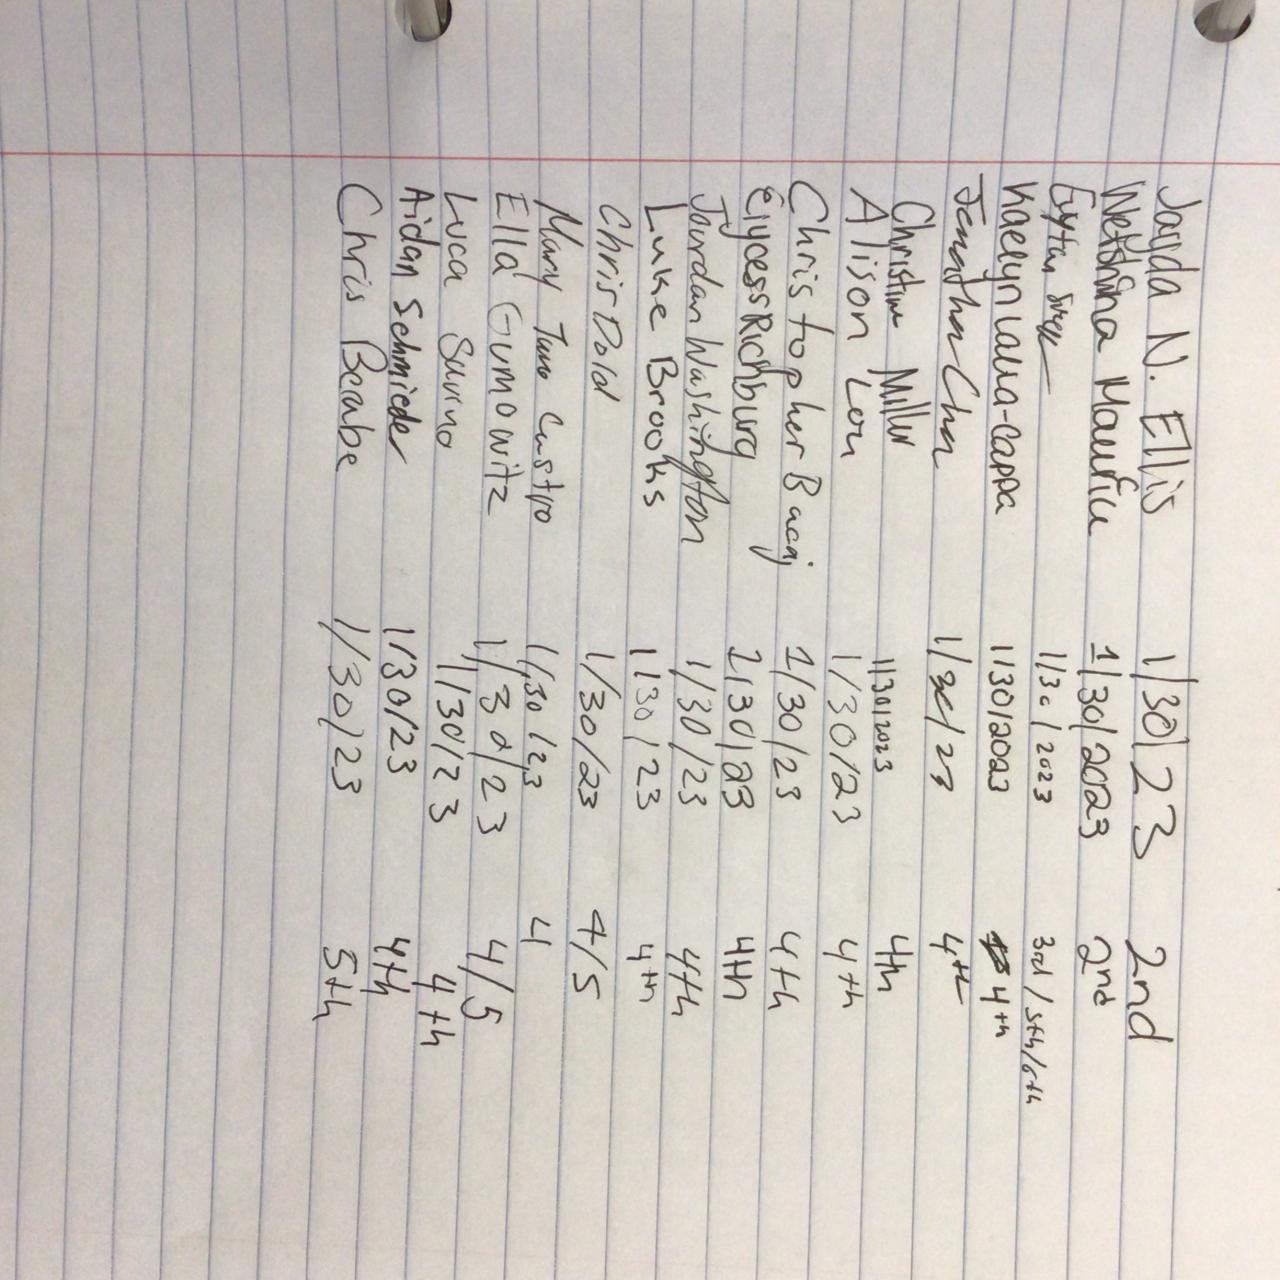 Jayda N. Ellis 1/30/23 2nd
Maurice 1/30/2023 2nd
Eytan 1/30/2023 3rd/5th/6th
Kaelyn Lalla-Cappa 1/30/2023 4th
Jonathan Chan 1/30/23 4th
Christine Miller 1/30/2023 4th
Alison Lou 1/30/23 4th
Christopher Bacaj 1/30/23 4th
Richburg 1/30/23 4th
Jourdan Washington 1/30/23 4th
Luke Brooks 1/30/23 4th
Chris Dold 1/30/23 4/5
Mary Castro 1/30/23 4
Ella Gumowitz 1/30/23 4/5
Luca Savino 1/30/23 4th
Aidan Schmieder 1/30/23 4th
Chris Berabe 1/30/23 5th